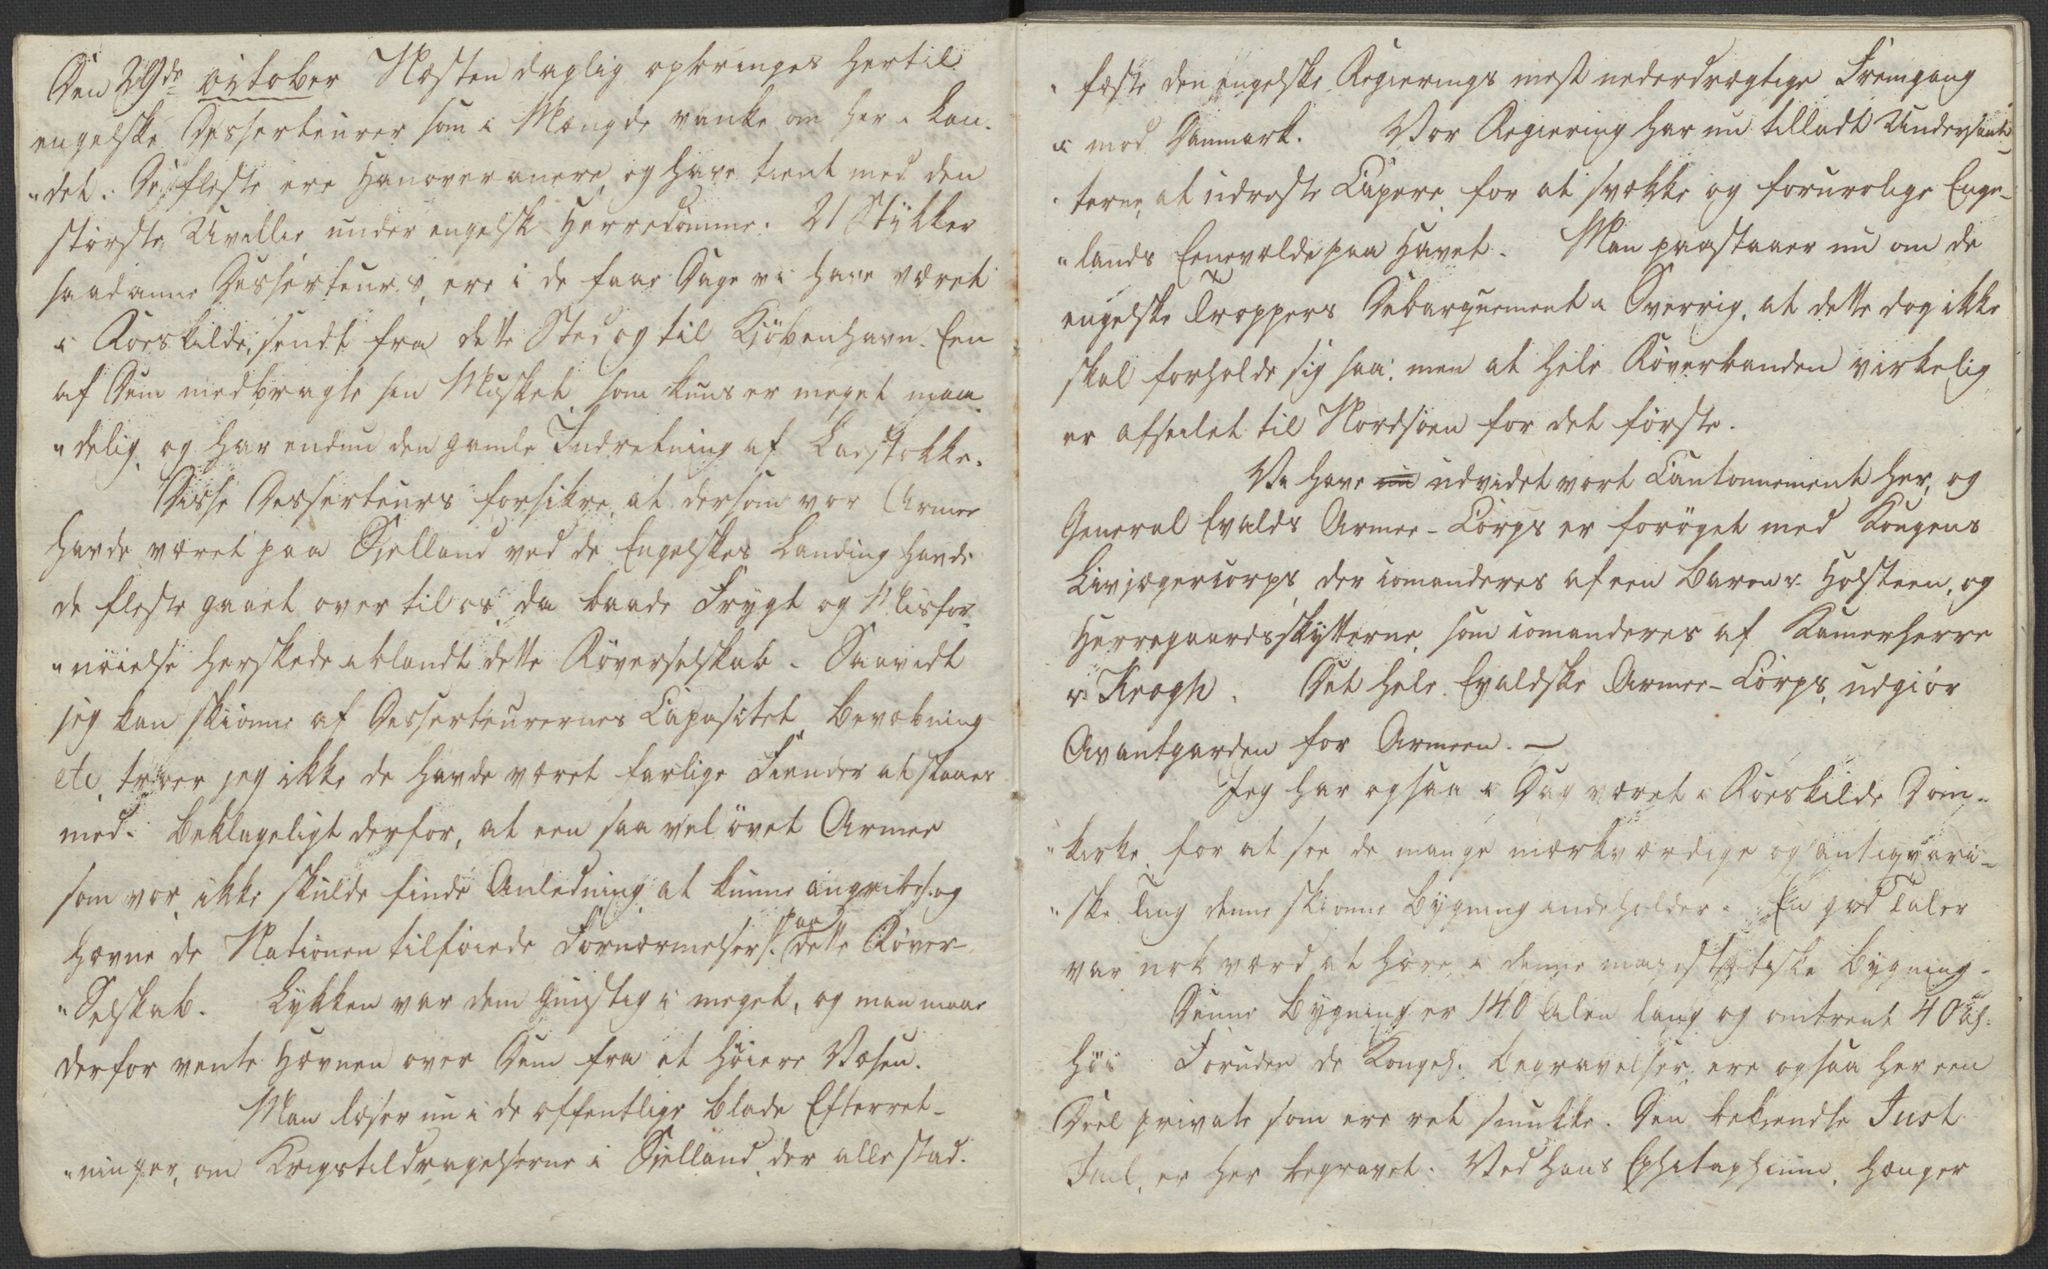 Den 29de october Næsten daglig opbringes hertil
engelske Desserteurer som i Mængde vanke om her i Lan-
"det. De fleste ere Hanoveranere, og have tient med den
störste Uvillie under engelsk Herredömme. 21 Stÿkker
saadanne Desserteurs, ere i de faae Dage vi have været
i Roeskilde, sendt fra dette Sted og til Kjöbenhavn. Een
af Dem medbragte sin Musket som kuns er meget maa-
"delig, og har endnu den gamle Indretning af Ladstokke.
Disse Desserteurs forsikre, at dersom vor Armee
havde været paa Sjelland ved de Engelskes Landing havde
de fleste gaaet over til os, da baade Frygt og Misfor-
"nöielse herskede iblandt dette Röverselskab. Saavidt
jeg kan skiönne af Desserteurernes Capasitet, Bevæbning
etc, troer jeg ikke de havde været farlige Fiender at slaaes
med. Beklageligt derfor, at een saa vel övet Armee
som vor, ikke skulde finde Anledning at kunne angribes, og
hævne de Nationen tilföiede Fornærmelser, paa dette Röver-
"Selskab. Lykken var dem gunstig i meget, og man maae
derfor vente Hævnen over Dem fra et höiere Væsen.
Man læser nu i de offentlige Blade Efterret-
"ninger, om Krigstildragelserne i Sjelland, der alle stad-
"fæste den engelske Regierings mest nederdrægtige Fremgang
"mod Danmark. Vor Regiering har nu tilladt Undersaat-
"terne, at udruste Capere for at svække og forurolige Enge-
"lands Eenevælde paa Havet. Man paastaaer nu om de
engelske Troppers Debarquement i Sverrig, at dette dog ikke
skal forholde sig saa; men at hele Röverbanden virkelig
er afseilet til Nordsöen for det förste.
Vi have nu udvidet vort Cantonnement her, og
General Evalds Armee-Corps er foröget med Kongens
Livjægercorps, der comanderes af een Baron v. Holsteen, og
Herregaardsskÿtterne, som comanderes af Kamerherre
v. Krogh. Det hele Evaldske Armee-Corps, udgiör
Avantgarden for Armeen. —
Jeg har ogsaa i Dag været i Roeskilde Dom-
"kirke, for at see de mange mærkværdige og antiqvari-
"ske Ting denne skiönne Bÿgning indeholder. En god Taler
var nok værd at höre, i denne majestætiske Bÿgning.
Denne Bÿgning er 140 Alen lang og omtrent 40
höi Foruden de Kongel. Begravelser, ere ogsaa her een
Deel private som ere ret smukke. Den bekjendte Just
Juel, er her begravet. Ved hans Ephitaphium, hænger